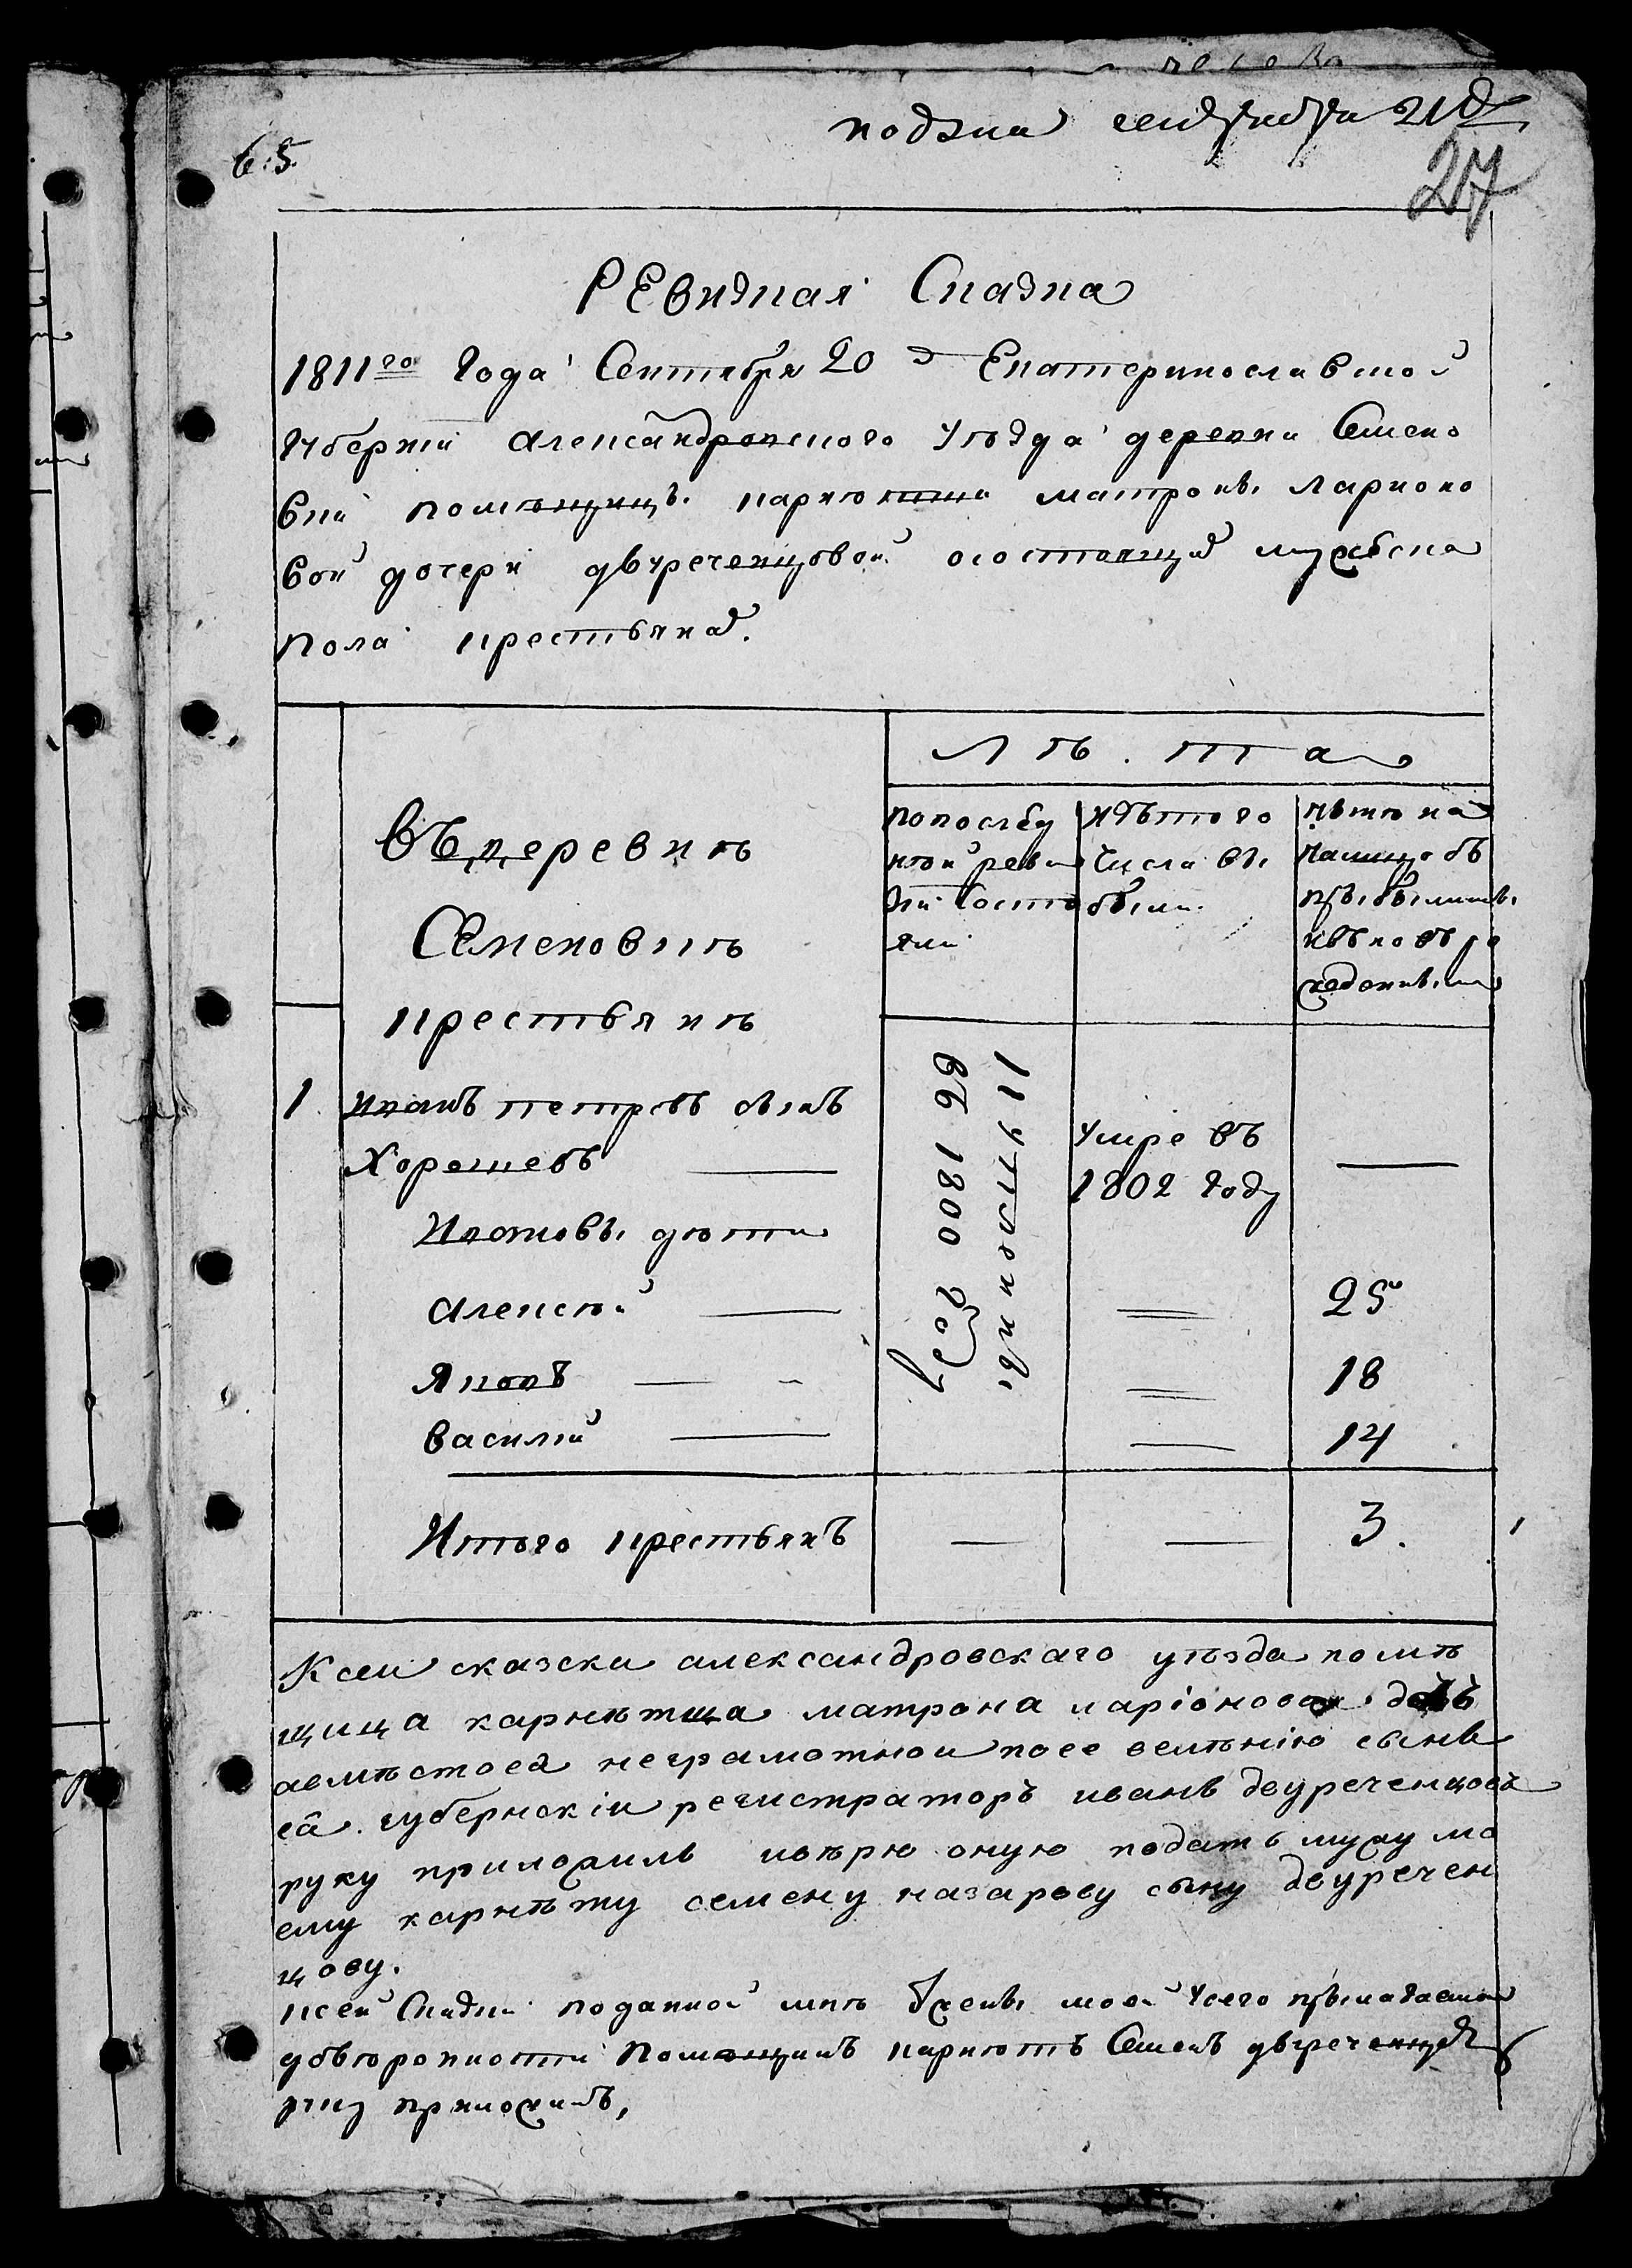 подана сентября 21 д
б:5.
27
РЕвизная Сказка
1811го Года Сентября 20 д Екатеринославской
Губернии александровского Уезда деревни Семено
вки помещицы карнютши матроны Ларионо
вой дочери двуреченцовой осостоящих мужеска
Пола крестьянах.
Лѣ.та
въдеревнѣ
Семеновкѣ
крестьянъ
попослед
ней реви
зии Состо
яли
изътого
Числа вы
были
лѣто на
лицо съ
прибылыми
ивъновь ро
жденными
1. Иванъ петровъ сынъ
Хорошевъ
66 1800 году
купленны
умре въ
1802 году
Ивановы дѣти
алексѣй 25
Яковъ 18
василий 14
Итого крестьянъ 3.
Ксеи сказски александровскаго уѣзда помѣ
щица карнѣтша матрона ларіонова дочь
авмѣстоеа неграмотнои поее велѣнію сынъ
еа губернскіи регистраторъ иванъ двуреченцовъ
руку приложилъ ивѣрю оную подать мужу мо
ему карнѣту семену назарову сыну двуречен
цову.
ксей Сказки поданной мнѣ Жены моей усего прилагаема
удовѣрности Помещикъ карнютъ Семенъ двуреченцовъ
руку приложилъ,